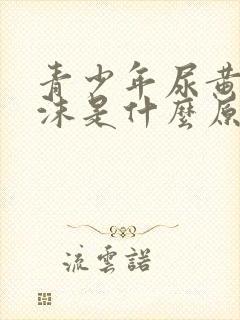 青少年尿黃
沫是什麼原
流雲諾